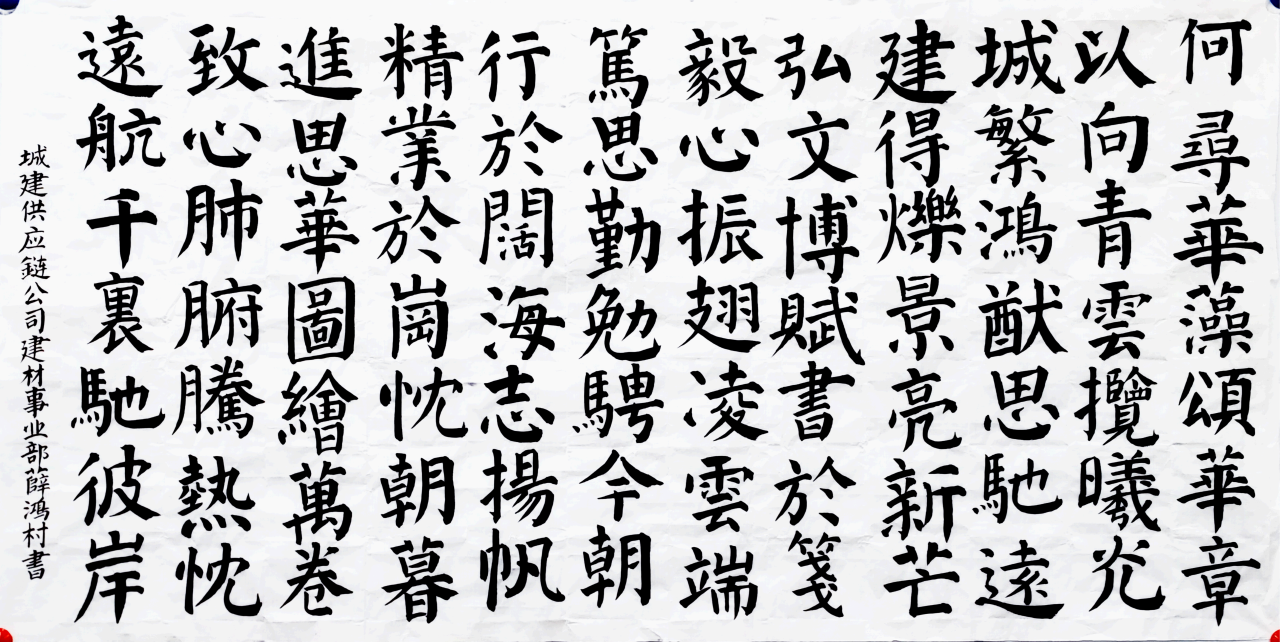 何尋華藻頌華章
以向青雲攬曦光
城繁鴻猷思馳遠
建得爍景亮新芒
弘文博賦書於箋
毅心振翅凌雲端
篤思勤勉騁今朝
行於闊海志揚帆
精業於崗忱朝暮
進思華圖繪萬卷
致心肺腑騰熱忱
遠航千裏馳彼岸
城建供应鏈公司建材事业部薛鴻村書